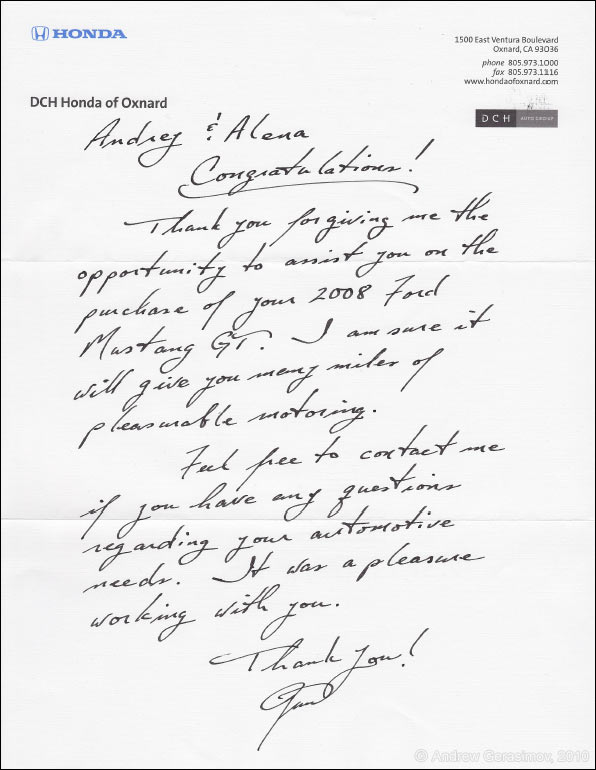 HONDA
1500 East Ventura Boulevard
Oxnard, CA 93036
phone 805.973.1000
fax 805.973.1116
www.hondaofoxnard.com
DCH Honda of Oxnard
DCH AUTO GROUP
Andrey & Alena
Congratulations!
Thank you for giving me the
opportunity to assist you on the
purchase of your 2008 Ford
Mustang GT. I am sure it
will give you many miles of
pleasurable motoring.
Feel free to contact me
if you have any questions
regarding your automotive
needs. It was a pleasure
working with you.
Thank you!
© Andrew Gerasimov, 2010